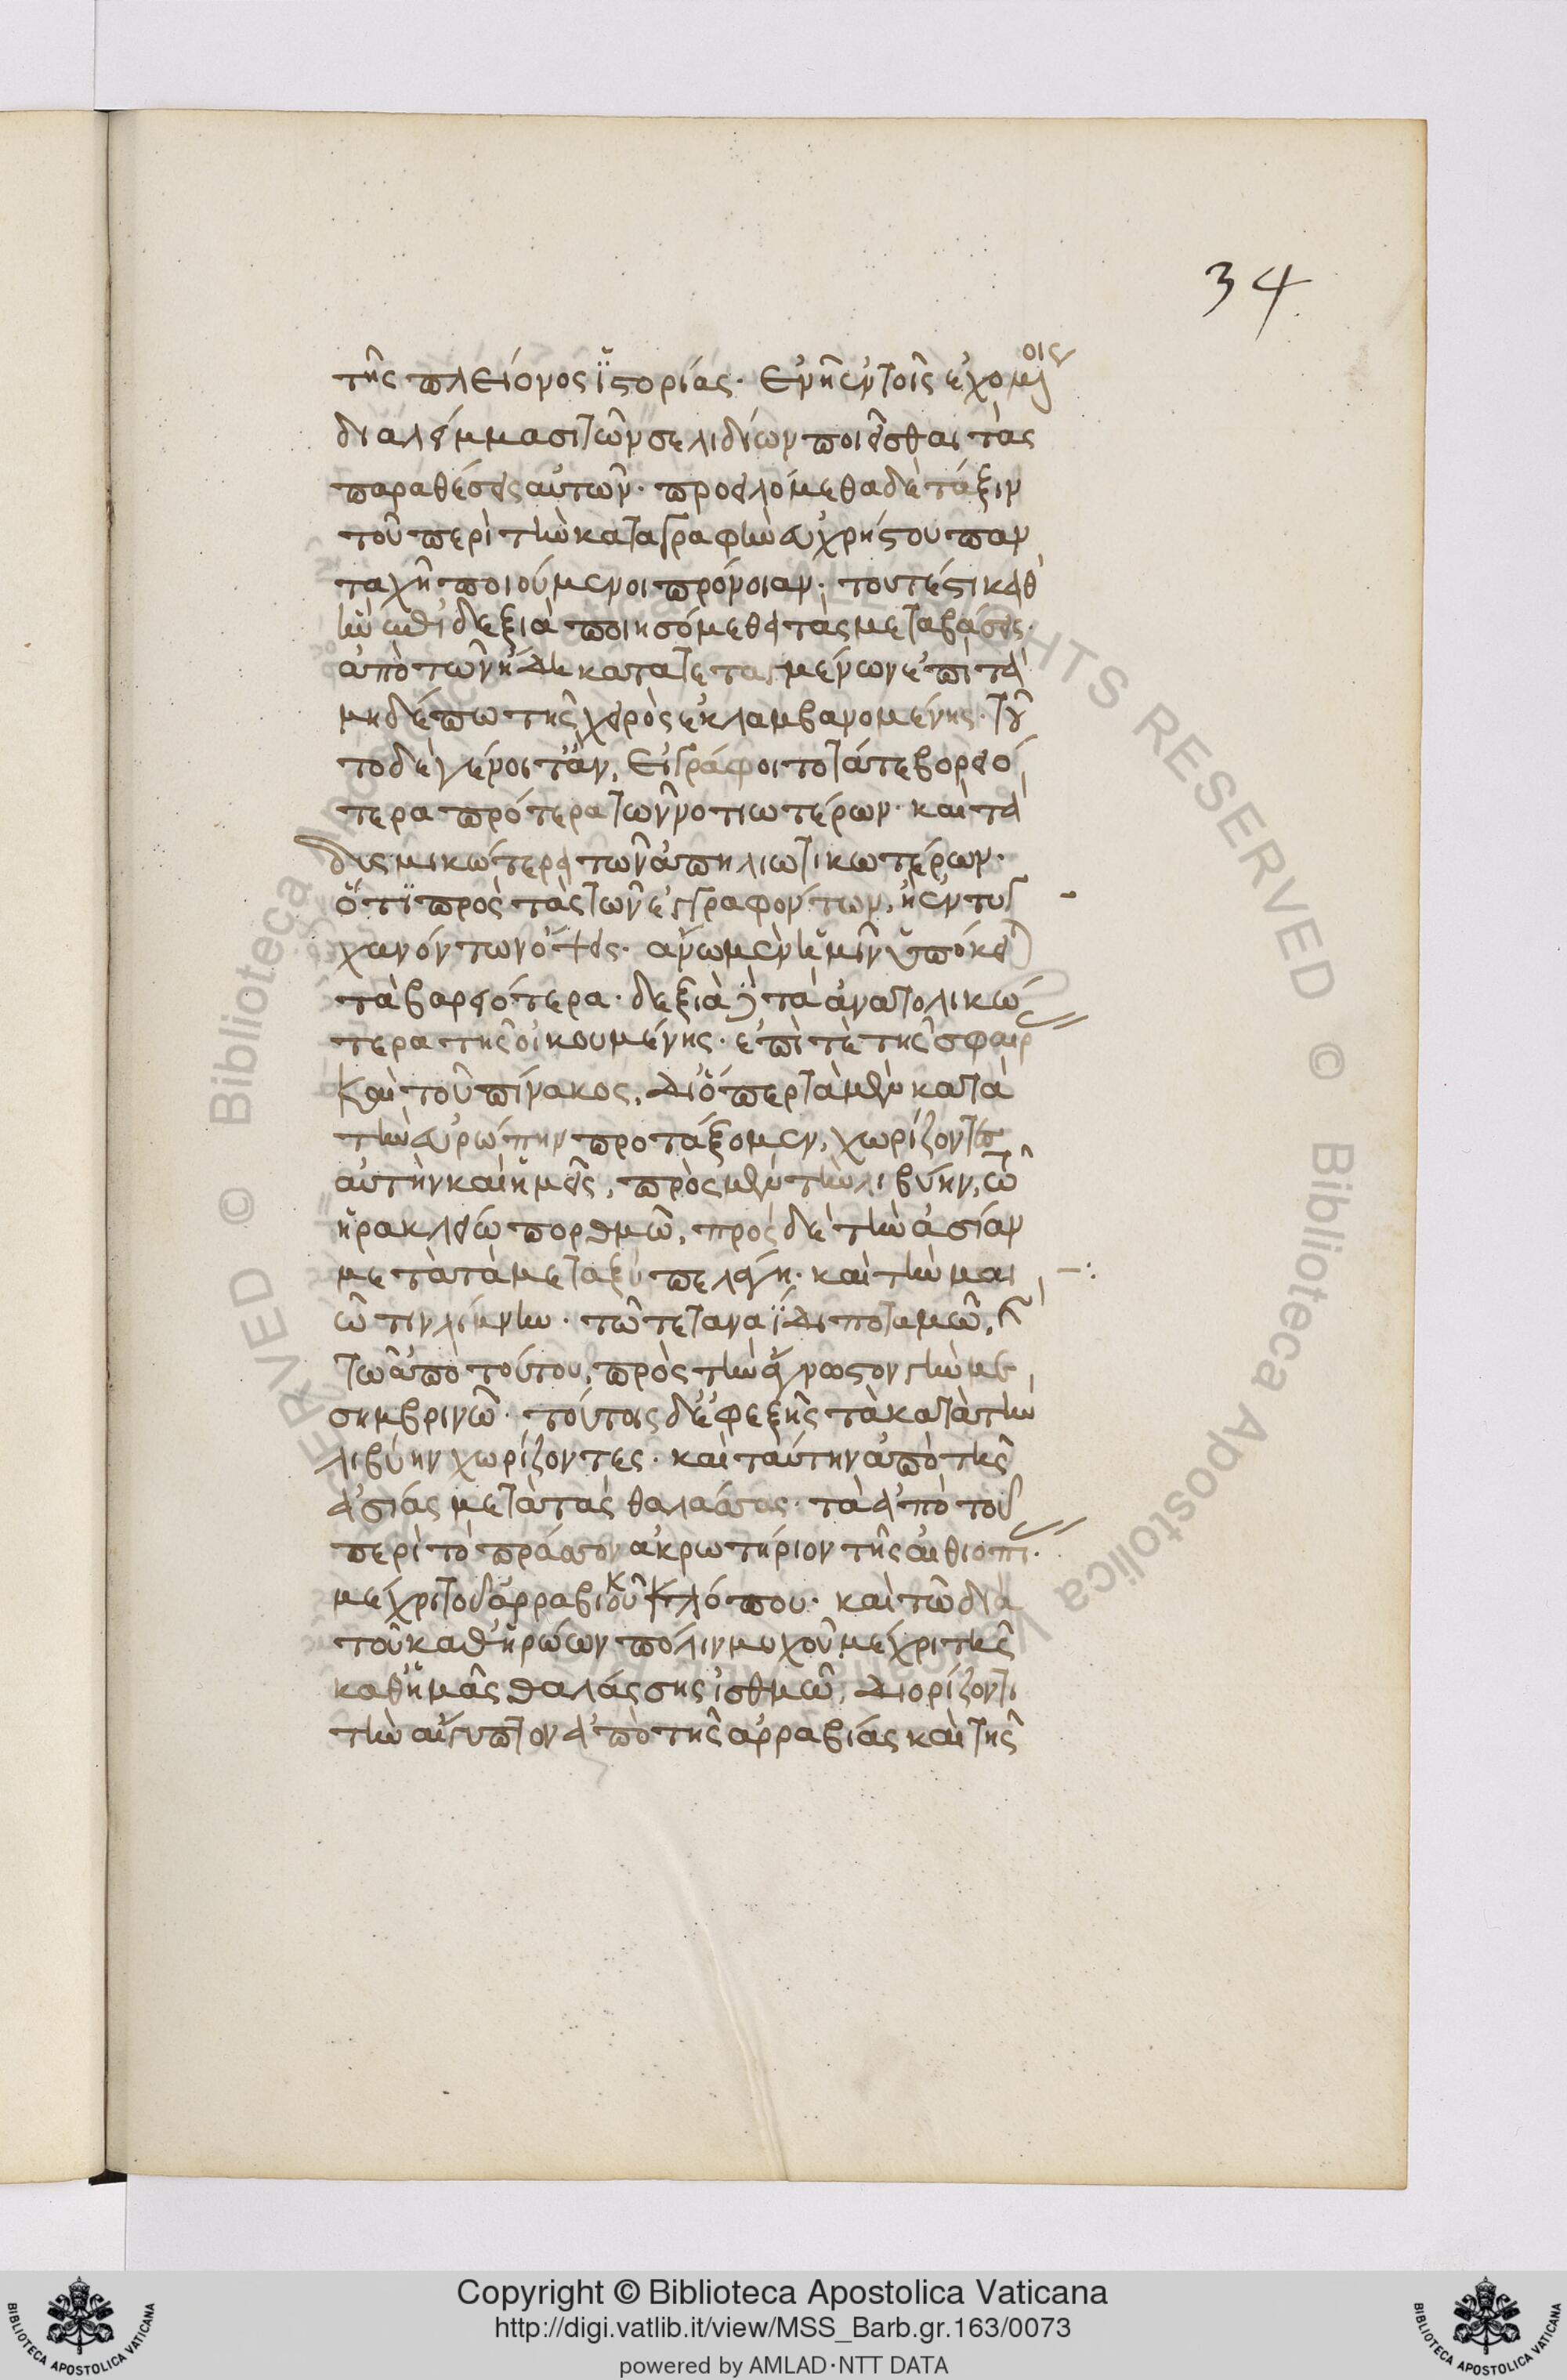 34
τῆς πλείονος ἱστορίας· ἐνῆ ἐν τοῖς ἐχομένοις
διαλείμμασι τῶν σελιδίων ποιεῖσθαι τὰς
παραθέσεις αὐτῶν· προειλόμεθα δὲ τάξιν
τοῦ περὶ τὴν καταγραφὴν εὐχρήστου παν
ταχῆ ποιούμενοι πρόνοιαν· τουτέστι καθ'
ἣν ἐπὶ δεξιὰ ποιησόμεθα τὰς μεταβάσεις·
ἀπὸ τῶν ἤδη κατατεταγμένων ἐπὶ τὰ
μηδέπω τῆς χειρὸς ἐκλαμβανομένης· τοῦ
το δὲ γένοιτ' ἄν, εἰ γράφοιτο τά τε βορειό
τερα πρότερα τῶν νοτιωτέρων· καὶ τὰ
δυσμικώτερα τῶν ἀπηλιωτικωτέρων·
ὅτι πρὸς τὰς τῶν ἐγγραφόντων, ἢ ἐντυγ
χανόντων ὄψεις· ἄνω μὲν ἡμῖν ὑπόκειται
τὰ βορειότερα· δεξιὰ δὲ τὰ ἀνατολικώ
τερα τῆς οἰκουμένης· ἐπί τε τῆς σφαίρ
καὶ τοῦ πίνακος, διόπερ τὰ μὲν κατὰ
τὴν εὐρώπην προτάξομεν, χωρίζοντες
αὐτὴν καὶ ἡμεῖς, πρὸς μὲν τὴν λιβύην, τῷ
ἡρακλείῳ πορθμῷ, πρὸς δὲ τὴν ἀσίαν
μετὰ τὰ μεταξὺ πελάγη· καὶ τὴν μαι
ῶτιν λίμνην· τῷ τε τανάϊδι ποταμῷ, καὶ
τῷ ἀπὸ τούτου, πρὸς τὴν ἄγνωστον γῆν με
σημβρινῷ· τούτοις δ' ἐφεξῆς τὰ κατὰ τὴν
λιβύην χωρίζοντες· καὶ ταύτην ἀπὸ τῆς
ἀσίας μετὰ τὰς θαλάσσας· τὰ ἀπὸ τοῦ
περὶ τὸ πράσον ἀκρωτήριον τῆς αἰθιοπι·
μέχρι τοῦ ἀρραβικοῦ κόλπου· καὶ τῷ διὰ
τοῦ καθ' ἡρώων πόλιν μυχοῦ μέχρι τῆς
καθ' ἡμᾶς θαλάσσης ἰσθμῷ, διορίζοντι
τὴν αἴγυπτον ἀπὸ τῆς ἀρραβίας καὶ τῆς
Copyright © Biblioteca Apostolica Vaticana
http://digi.vatlib.it/view/MSS_Barb.gr.163/0073
powered by AMLAD·NTT DATA